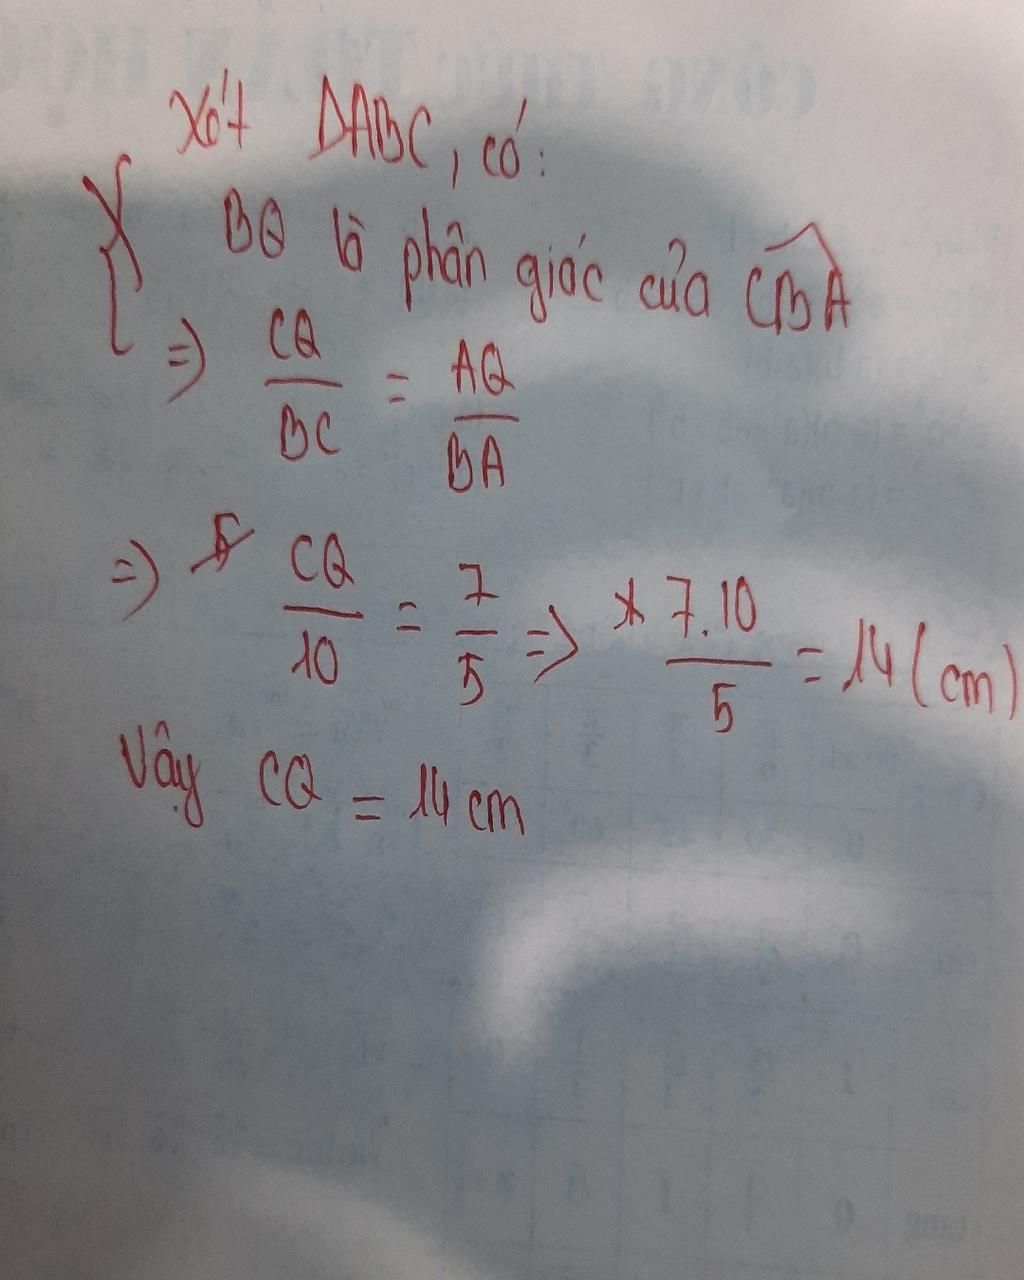 Xét ΔABC, có:
BQ là phân giác của CBA
=> CQ/BC = AQ/BA
=> CQ/10 = 7/5 => 7.10/5 = 14 (cm)
Vậy CQ = 14 cm